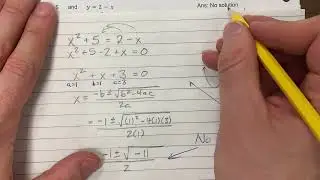 and y = 2 - x Ans: No solution
x² + 5 = 2 - x
x² + 5 - 2 + x = 0
x² + x + 3 = 0
a=1 b=1 c=3
x = -b ± √b² - 4ac
2a
= -1 ± √(1)² - 4(1)(3)
2(1)
No
-1 ± √-11
2